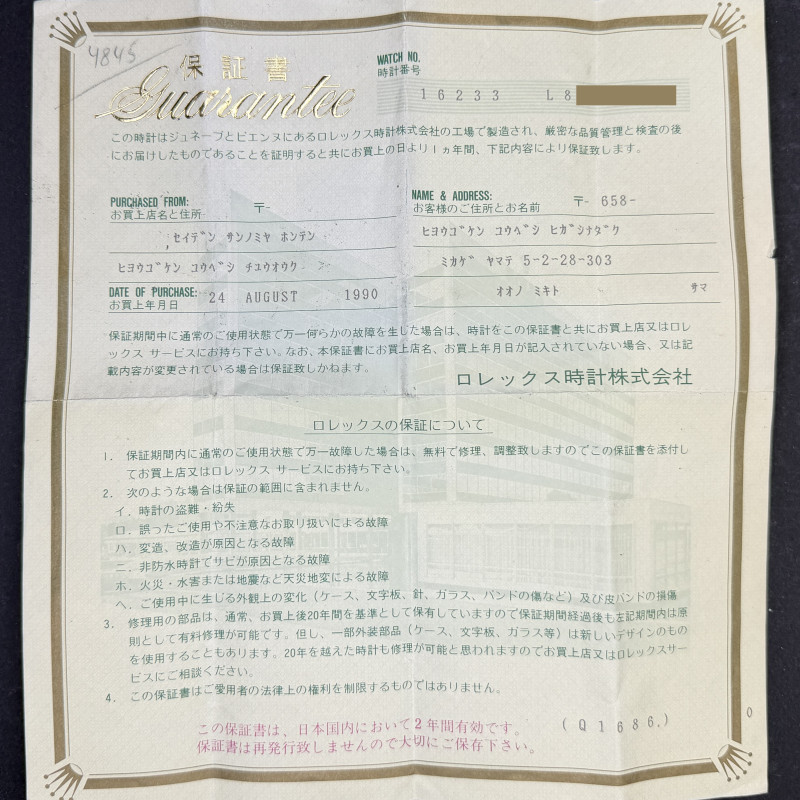 4845
保証書
Guarantee
WATCH NO.
時計番号
16233 L8
この時計はジュネーブとビエンヌにあるロレックス時計株式会社の工場で製造され、厳密な品質管理と検査の後
にお届けしたものであることを証明すると共にお買上の日より1ヵ年間、下記内容により保証致します。
PURCHASED FROM:
お買上店名と住所
〒-
セイデン サンノミヤ ホンテン
ヒヨウゴケン コウベシ チユウオウク
DATE OF PURCHASE:
お買上年月日
24 AUGUST 1990
NAME & ADDRESS:
お客様のご住所とお名前
〒- 658-
ヒヨウゴケン コウベシ ヒガシナダク
ミカゲ ヤマテ 5-2-28-303
オオノ ミキト サマ
保証期間中に通常のご使用状態で万一何らかの故障を生じた場合は、時計をこの保証書と共にお買上店又はロレ
ックス サービスにお持ち下さい。なお、本保証書にお買上店名、お買上年月日が記入されていない場合、又は記
載内容が変更されている場合は保証致しかねます。
ロレックス時計株式会社
ロレックスの保証について
1. 保証期間内に通常のご使用状態で万一故障した場合は、無料で修理、調整致しますのでこの保証書を添付し
てお買上店又はロレックス サービスにお持ち下さい。
2. 次のような場合は保証の範囲に含まれません。
イ. 時計の盗難・紛失
ロ. 誤ったご使用や不注意なお取り扱いによる故障
ハ. 変造、改造が原因となる故障
ニ. 非防水時計でサビが原因となる故障
ホ. 火災・水害または地震など天災地変による故障
ヘ. ご使用中に生じる外観上の変化（ケース、文字板、針、ガラス、バンドの傷など）及び皮バンドの損傷
3. 修理用の部品は、通常、お買上後20年間を基準として保有していますので保証期間経過後も左記期間内は原
則として有料修理が可能です。但し、一部外装部品（ケース、文字板、ガラス等）は新しいデザインのもの
を使用することもあります。20年を越えた時計も修理が可能と思われますのでお買上店又はロレックスサー
ビスにご相談ください。
4. この保証書はご愛用者の法律上の権利を制限するものではありません。
この保証書は、日本国内において2年間有効です。
保証書は再発行致しませんので大切にご保存下さい。
(Q1686.)
0